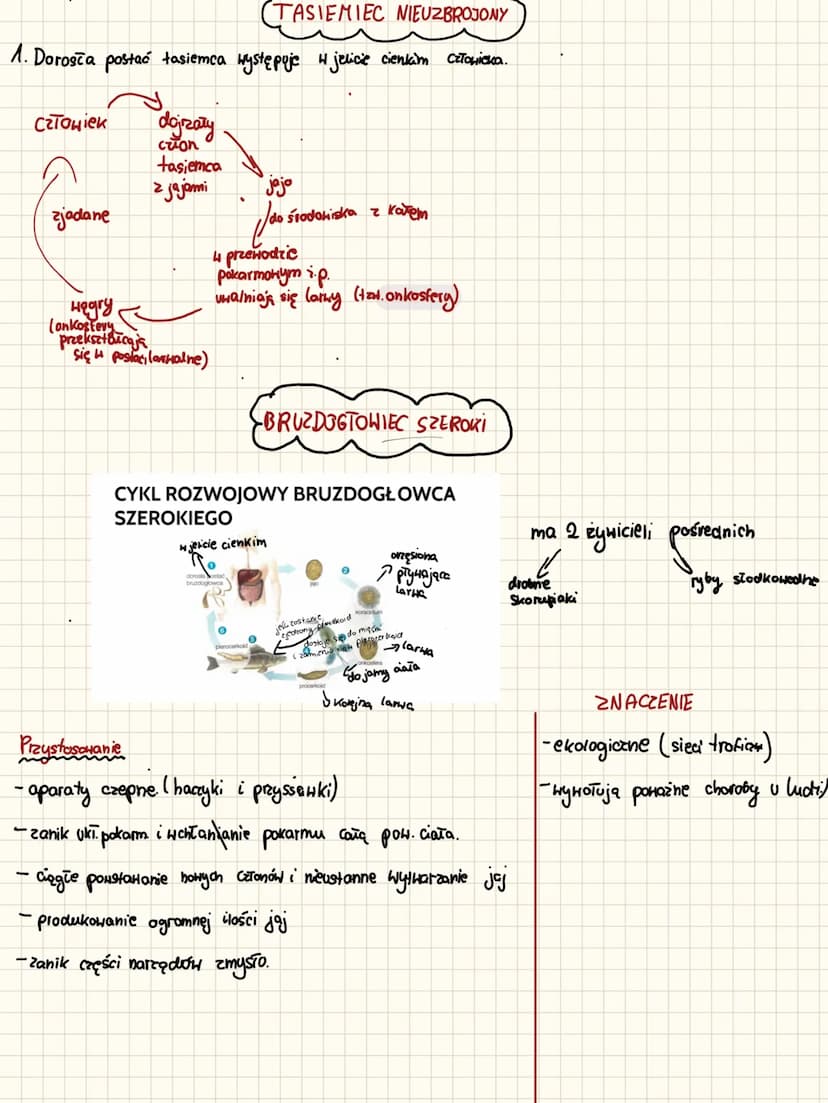 TASIEMIEC NIEUZBROJONY
1. Dorosła postać tasiemca występuje w jelicie cienkim człowieka.
człowiek
dojrzały
człon
tasiemca
z jajami
jajo
do środowiska z kałem
w przewodzie
pokarmowym ż.p.
uwalniają się larwy (tzw. onkosfery)
wągry
(onkosfery
przekształcają
się w postaci larwalne)
zjadane
BRUZDOGŁOWIEC SZEROKI
CYKL ROZWOJOWY BRUZDOGŁOWCA
SZEROKIEGO
w jelicie cienkim
1
dorosła postać
bruzdogłowca
jajo
2
orzęsiona
pływająca
larwa
koracidium
→ larwa
onkosfera
do jamy ciała
procerkoid
↓ kolejna larwa
5
plerocerkoid
6
ma 2 żywicieli pośrednich
drobne
skorupiaki
ryby słodkowodne
Przystosowanie
- aparaty czepne (haczyki i przyssawki)
- zanik ukł. pokarm. i wchłanianie pokarmu całą pow. ciała.
- ciągłe powstawanie nowych członów i nieustanne wytwarzanie jaj
- produkowanie ogromnej ilości jaj
- zanik części narządów zmysło.
ZNACZENIE
- ekologiczne (sieci trofizn)
- wywołują poważne choroby u ludzi